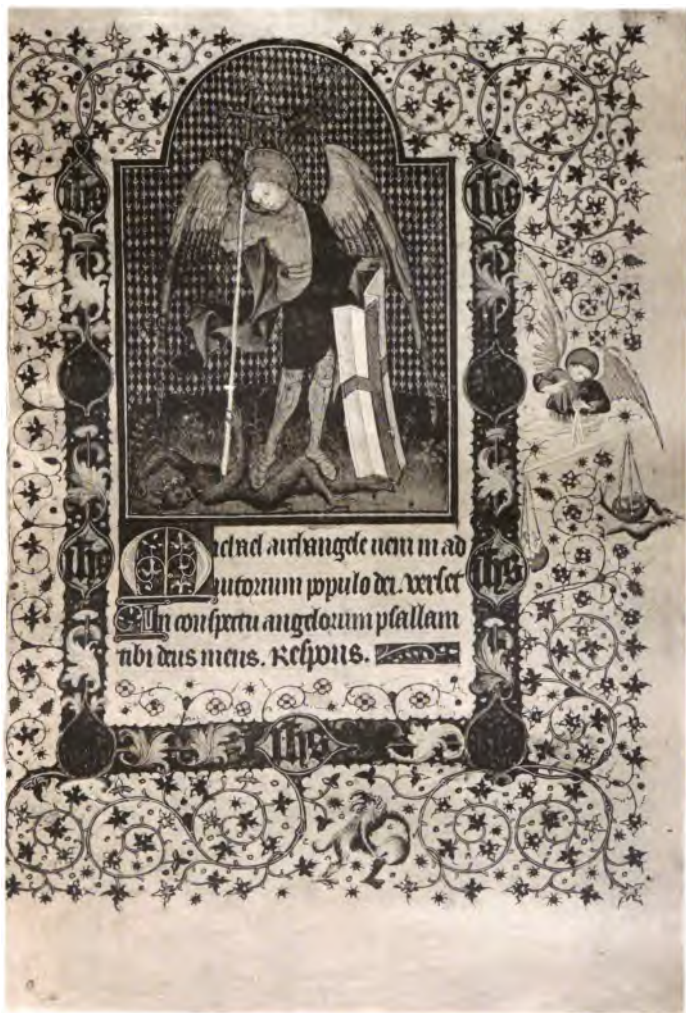 ihs
ihs
Michael archangele ueni in ad
iutorium populo dei. verset
In conspectu angelorum psallam
tibi deus meus. Respons.
ihs
ihs
ihs